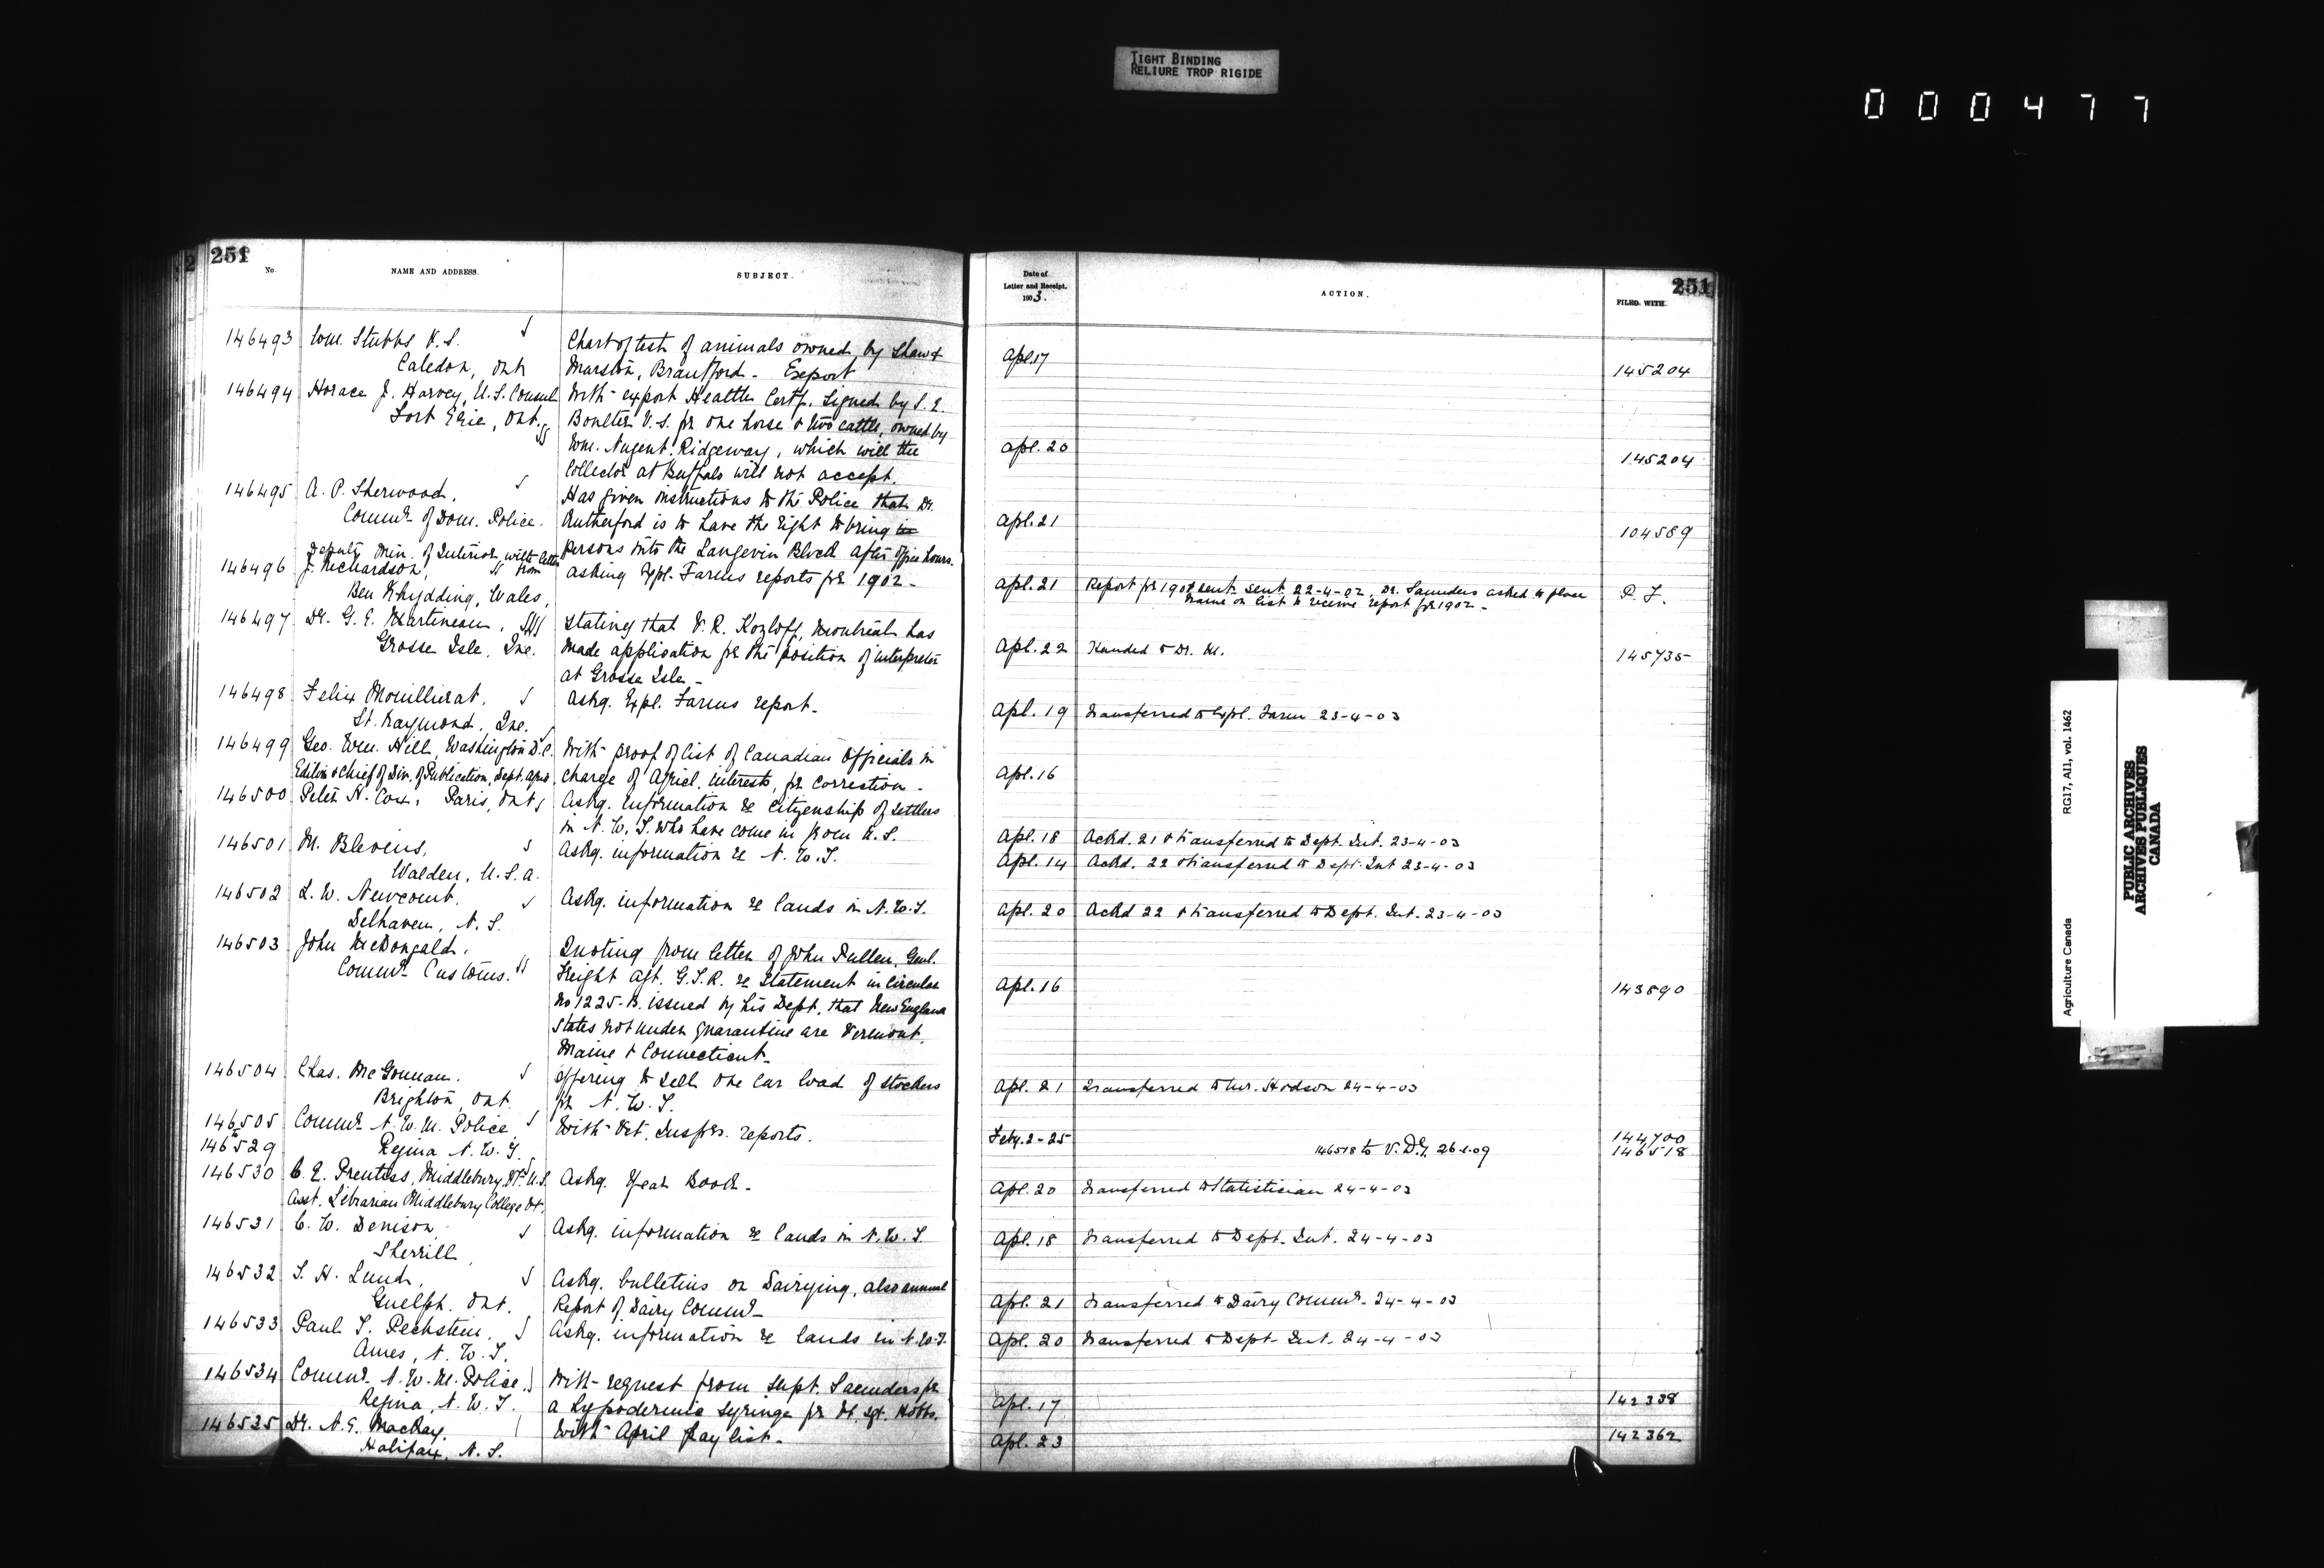 TIGHT BINDING
RELIURE TROP RIGIDE
000477
251
No.
NAME AND ADDRESS.
SUBJECT.
146493 Wm. Stubbs V.S.
Caledon, Ont.
Chart of test of animals owned by Shaw &
Marston, Brantford. Export
146494 Horace J. Harvey, U.S. Consul
Fort Erie, Ont.
With export Health Certf. signed by S. E.
Boulter V.S. for one horse & two cattle, owned by
Wm. Nugent, Ridgeway, which will the
Collector at Buffalo will not accept.
146495 A. P. Sherwood,
Commr. of Dom. Police.
Has given instructions to the Police that Dr.
Rutherford is to have the right to bring in
persons into the Langevin Block after office hours.
Deputy Min. of Interior, with letter
146496 J. Richardson, from
Ben Rhydding, Wales,
Asking Expl. Farms reports for 1902.
146497 Dr. G. E. Martineau,
Grosse Isle, Que.
Stating that V. R. Kozloff, Montreal has
made application for the position of interpreter
at Grosse Isle.
146498 Felix Mouillierat,
St. Raymond, Que.
Askg. Expl. Farms report.
146499 Geo. Wm. Hill, Washington D.C.
Editor & Chief of Div. of Publication, Dept. Agric.
With proof of list of Canadian Officials in
charge of Agricl. interests, for correction.
146500 Peter H. Cox, Paris, Ont.
Askg. information re citizenship of settlers
in N.W.T. who have come in from U.S.
146501 M. Blevins,
Walden, U.S.A.
Askg. information re N.W.T.
146502 L. W. Newcomb.
Delhaven, N.S.
Askg. information re lands in N.W.T.
146503 John McDougald,
Commr. Customs.
Quoting from letter of John Pullen, Genl.
Freight Agt. G.T.R. re statement in Circular
No 1225-B. issued by his Dept. that New England
States not under quarantine are Vermont,
Maine & Connecticut.
146504 Chas. McGonnan.
Brighton, Ont.
Offering to sell one car load of stockers
for N.W.T.
146505 Commr. N.W.M. Police
to
146529 Regina N.W.T.
With Vet. Inspr's. reports.
146530 C. E. Prentiss, Middlebury, Vt. U.S.
Asst. Librarian Middlebury College Vt.
Askg. Year Book.
146531 C. W. Denison
Sherrill,
Askg. information re lands in N.W.T.
146532 T. H. Lund,
Guelph, Ont.
Askg. bulletins on Dairying, also annual
Report of Dairy Commr.
146533 Paul T. Pechstein,
Ames, N.W.T.
Askg. information re lands in N.W.T.
146534 Commr. N.W.M. Police,
Regina, N.W.T.
With request from Supt. Saunders for
a hypodermic syringe for St. Sgt. Hobbs.
146535 Dr. N. E. MacKay,
Halifax, N.S.
With April pay list.
Date of
Letter and Receipt.
1903.
ACTION.
251
FILED WITH.
Apl. 17 145204
Apl. 20 145204
Apl. 21 104589
Apl. 21 Report for 1901 sent sent 22-4-02. Dr. Saunders asked to place P.F.
name on list to receive report for 1902.
Apl. 22 Handed to Dr. M. 145735
Apl. 19 Transferred to Expl. Farm 23-4-03
Apl. 16
Apl. 18 Ackd. 21 & transferred to Dept. Int. 23-4-03
Apl. 14 Ackd. 22 & transferred to Dept. Int 23-4-03
Apl. 20 Ackd 22 & transferred to Dept. Int. 23-4-03
Apl. 16 143890
Apl. 21 Transferred to Mr. Hodson 24-4-03
Feby. 2-25 144700
146518 to V.D.G. 26-1-09 146518
Apl. 20 Transferred to Statistician 24-4-03
Apl. 18 Transferred to Dept. Int. 24-4-03
Apl. 21 Transferred to Dairy Commr. 24-4-03
Apl. 20 Transferred to Dept. Int. 24-4-03
Apl. 17 142338
Apl. 23 142362
Agriculture Canada RG17, AII, vol. 1462
PUBLIC ARCHIVES
ARCHIVES PUBLIQUES
CANADA